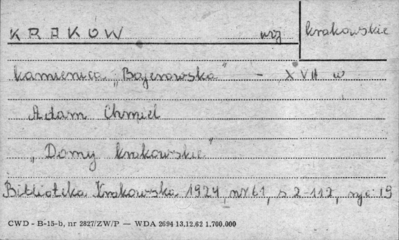 KRAKOW woj krakowskie
kamienica "Bajerowska" - XVII w
Adam Chmiel
"Domy krakowskie"
Biblioteka Krakowska 1924, nr 61, s 2-112, ryc 15
CWD - B-15-b, nr 2827/ZW/P — WDA 2694 13.12.62 1.700.000